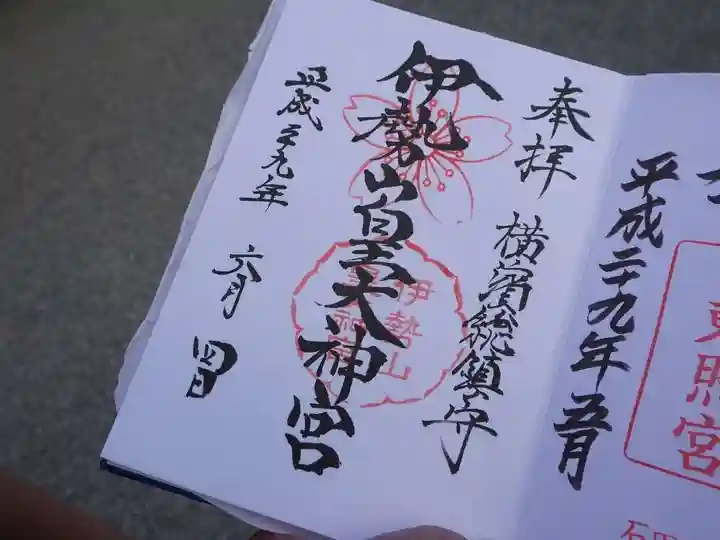 平成二十九年五月
東照宮
奉拝
横濱総鎮守
伊勢山皇大神宮
伊勢山
平成二十九年
六月
四日